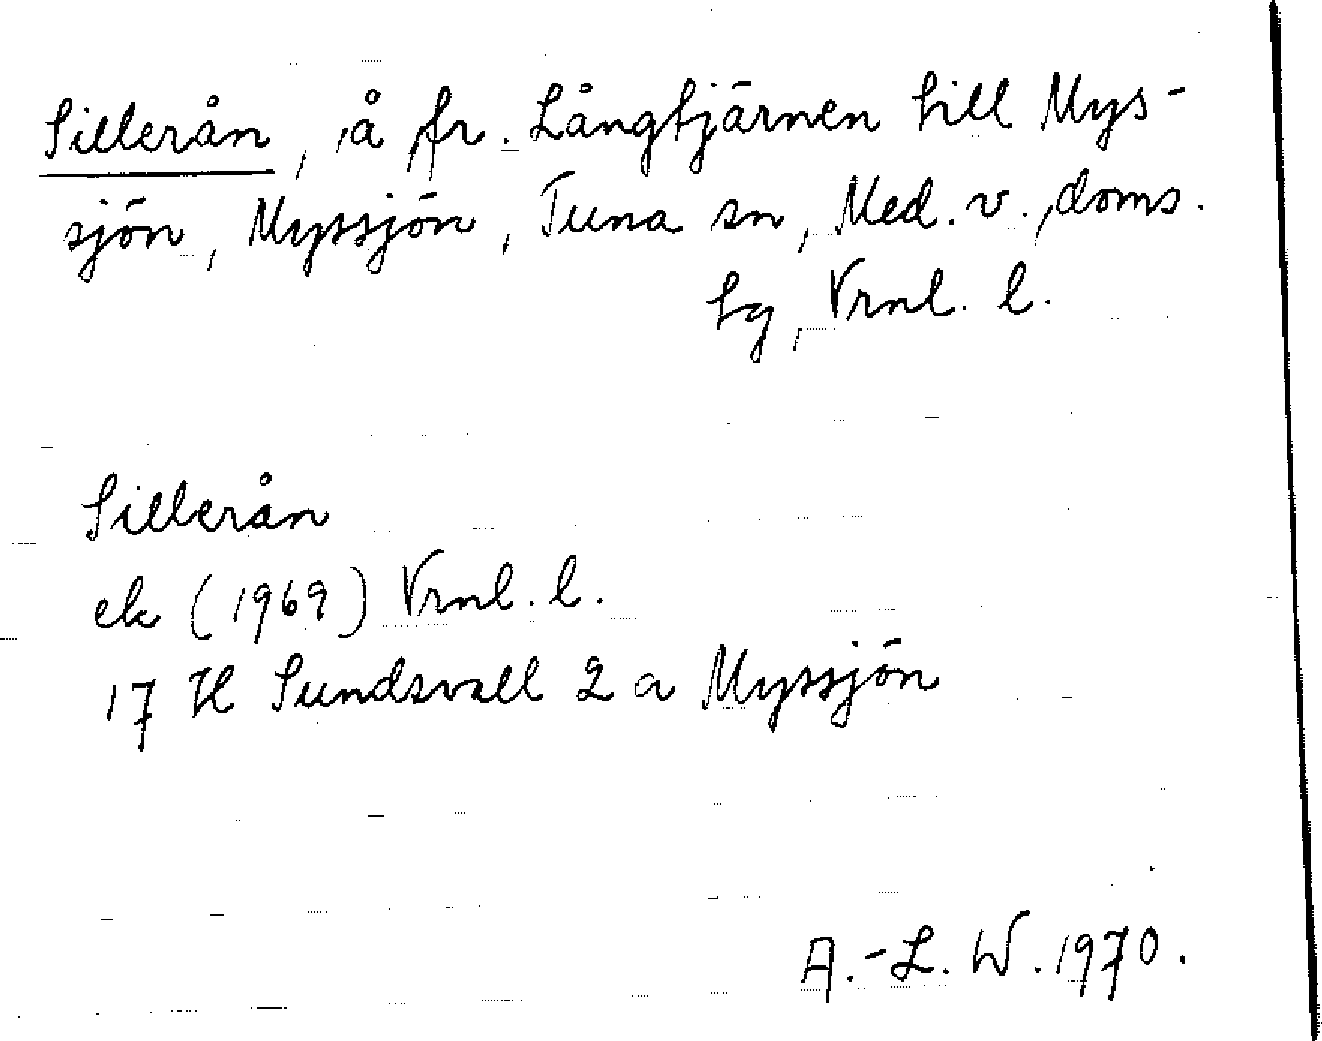 Sillerån, å fr. Långtjärnen till Mys-
sjön, Myssjön, Tuna sn, Med. v. doms.
tg, Vrnl. l.
Sillerån
ek (1969) Vrnl. l.
17 H Sundsvall 2 a Myssjön
A.-L. W. 1970.